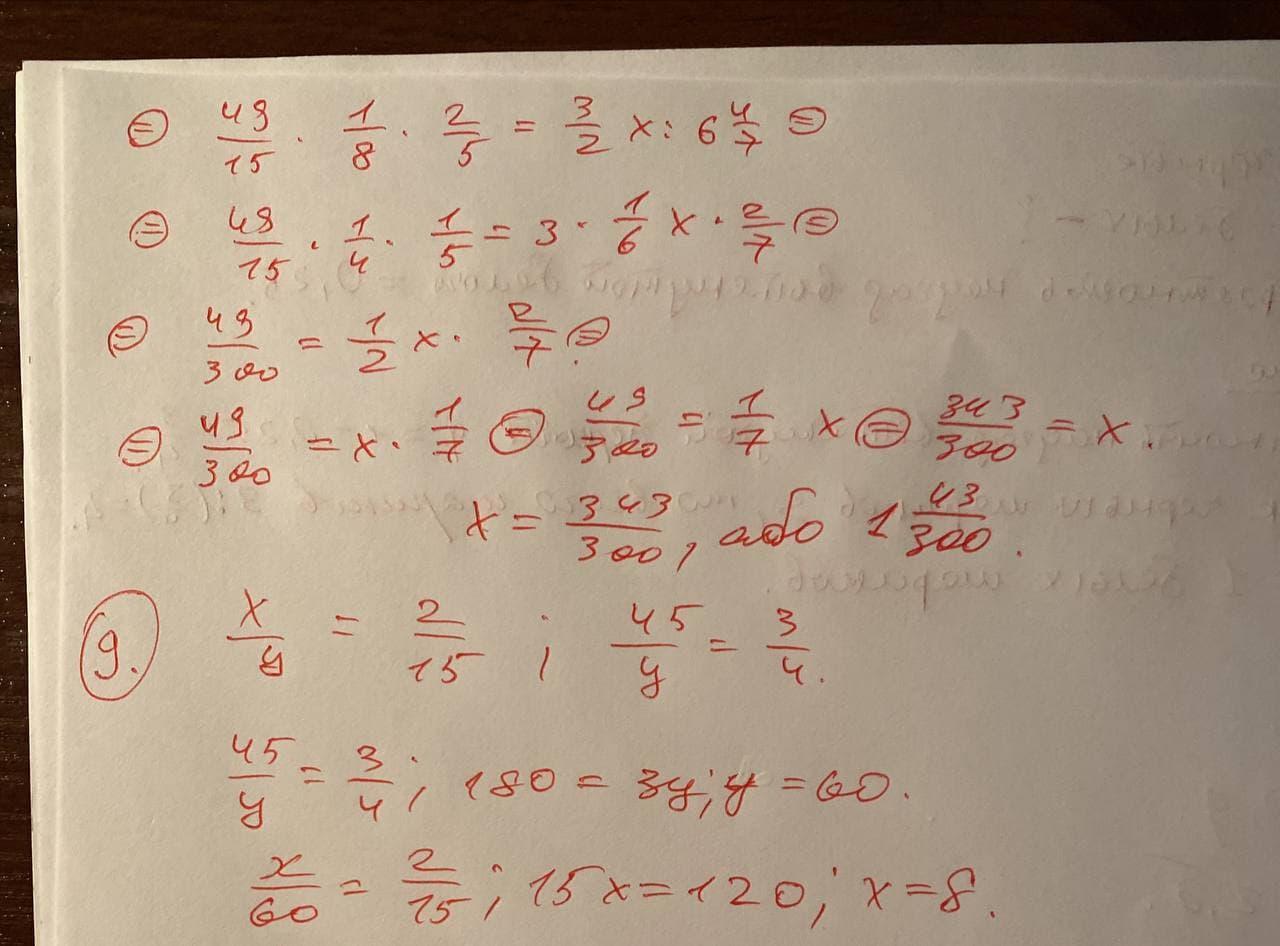 = 49/15 · 1/8 · 2/5 = 3/2 x : 6 4/7 =
= 49/15 · 1/4 · 1/5 = 3 · 1/6 x · 2/7 =
= 49/300 = 1/2 x · 2/7 =
= 49/300 = x · 1/7 = 49/300 = 1/7 x = 343/300 = x.
x = 343/300, або 1 43/300.
9. x/y = 2/15 ; 45/y = 3/4.
45/y = 3/4 ; 180 = 3y; y = 60.
x/60 = 2/15 ; 15x = 120; x = 8.